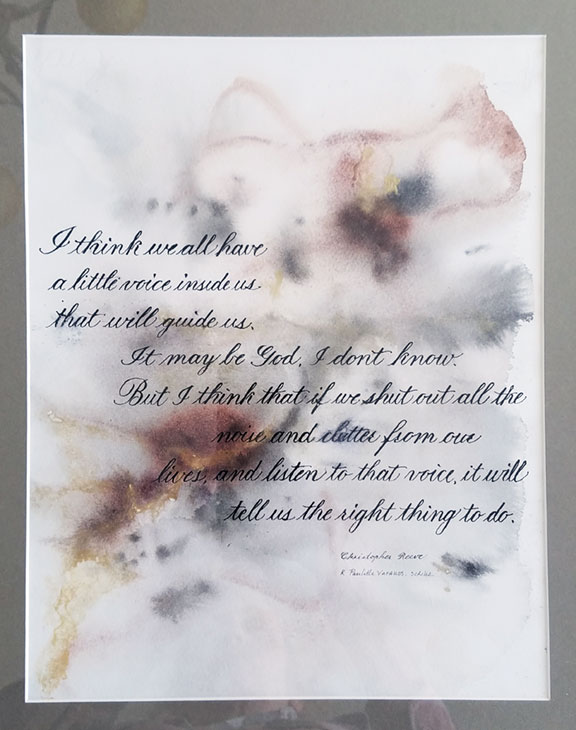 I think we all have
a little voice inside us
that will guide us.
It may be God, I dont know.
But I think that if we shut out all the
noise and clutter from our
lives, and listen to that voice, it will
tell us the right thing to do.
Christopher Reeve
R.